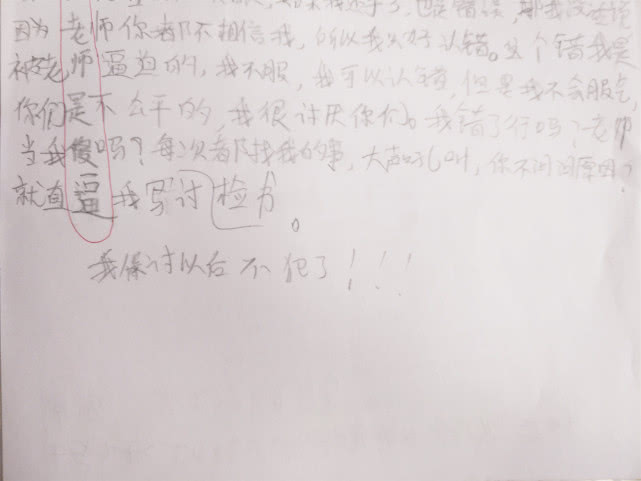 如果我还手了，也是错误，那我没还
因为老师你都不相信我，所以我只好认错。这个错我是
被老师逼迫的，我不服，我可以认错，但是我不会服气，
你们是不公平的，我很讨厌你们。我错了行吗？老师
当我傻吗？每次都找我的事，大声吼叫，你不问问原因？
就直逼我写讨检书。
我保讨以后不犯了！！！